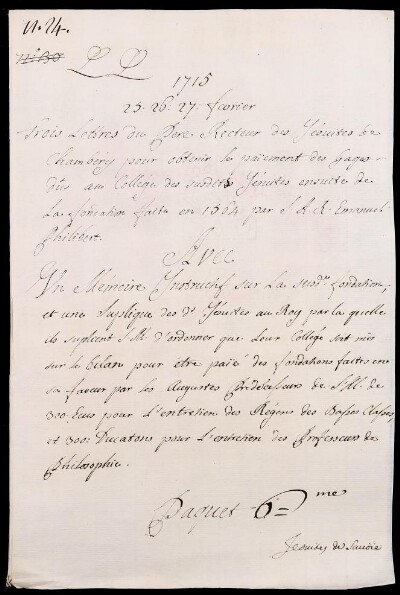 n. 24.
n: 130
1715
25. 26. 27. fevrier
Trois Lettres du Pere Recteur des Jésuites de
Chambéry pour obtenir le paiement des Gages
dûs au Collége des susdits Jésuites ensuite de
la fondation faite en 1564 par S. A. R. Emanuel
Philibert.
Avec
Un Mémoire Instructif sur la susd.e fondation,
et une Suplique des d.s Jésuites au Roy par la quelle
ils suplient S. M. d'ordonner que leur Collége soit mis
sur le Bilan pour etre paié des fondations faites en
sa faveur par les Augustes Prédécesseurs de S. M. de
300. Ecus pour l'entretien des Régens des Basses Classes,
et 300. Ducatons pour l'entretien des Professeurs de
Philosophie.
Paquet 6.me
Jesuites de Savoie